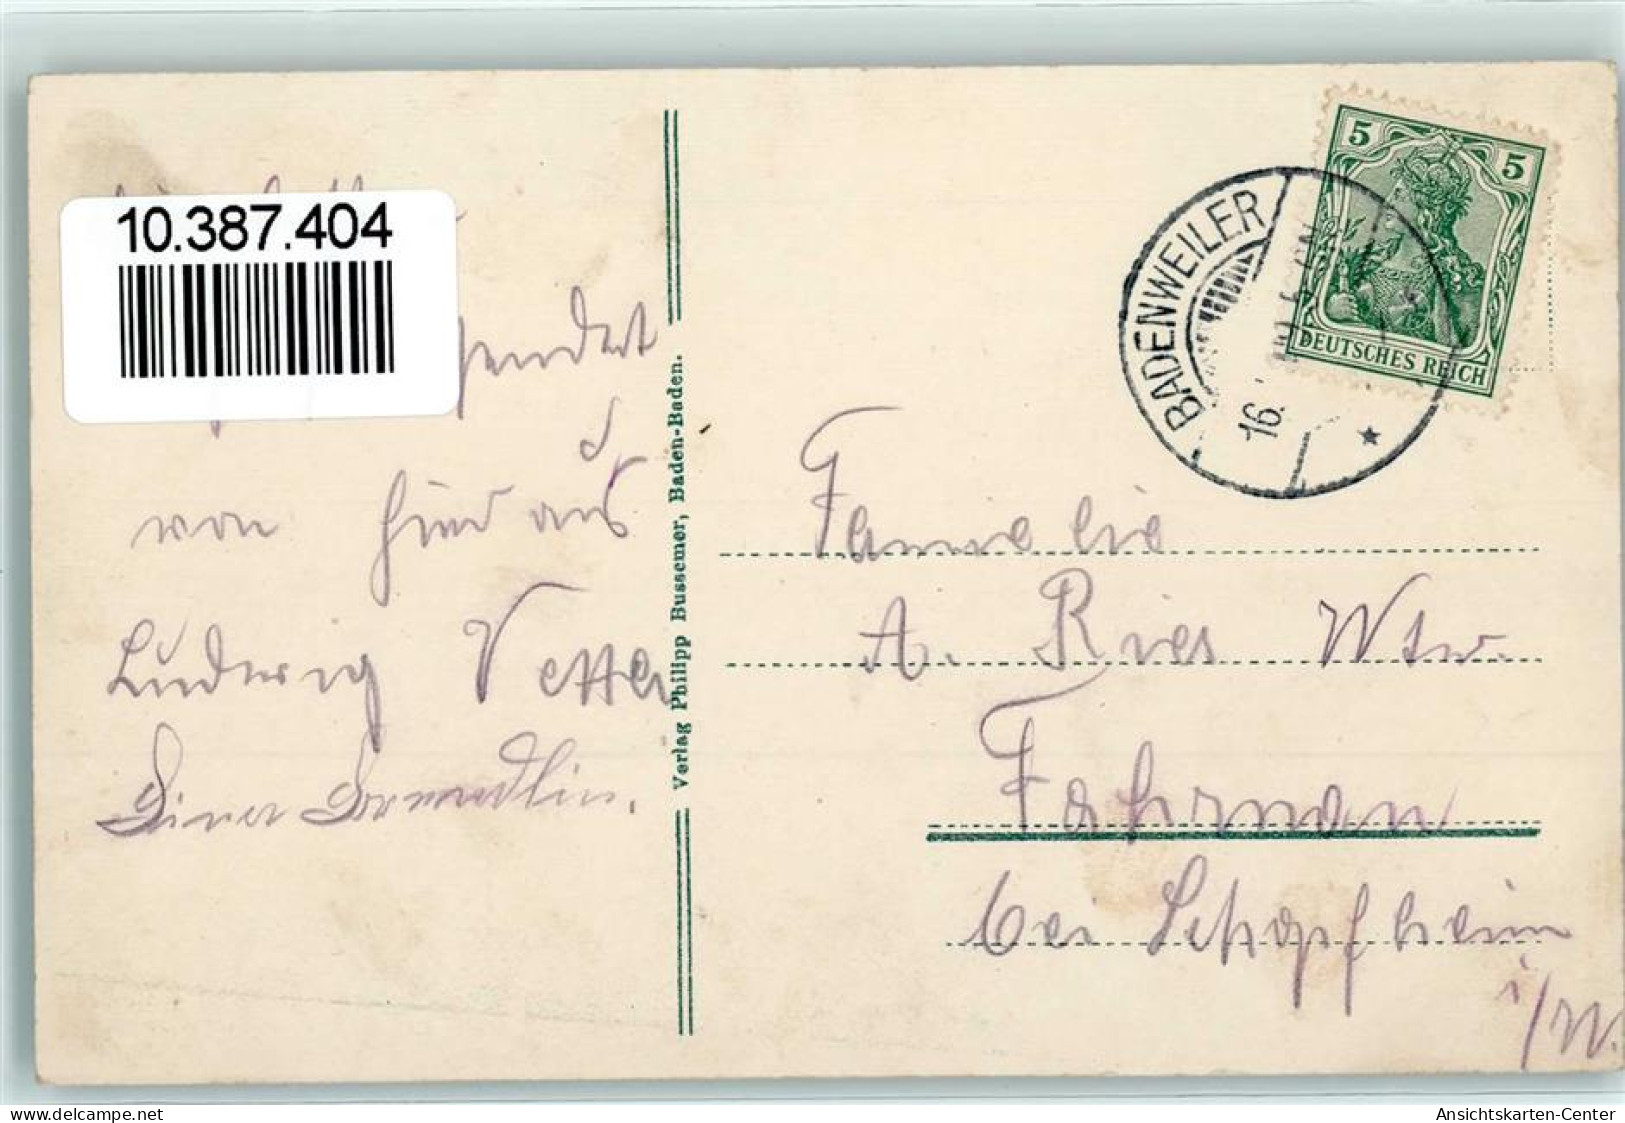 10.387.404
sendet
von hier aus
Ludwig Vetter
Verlag Philipp Bussemer, Baden-Baden.
5 5
DEUTSCHES REICH
BADENWEILER
16.
Familie
A. Ries Wtw.
Fahrnau
bei Schopfheim
i/W.
delcampe.net
Ansichtskarten-Center